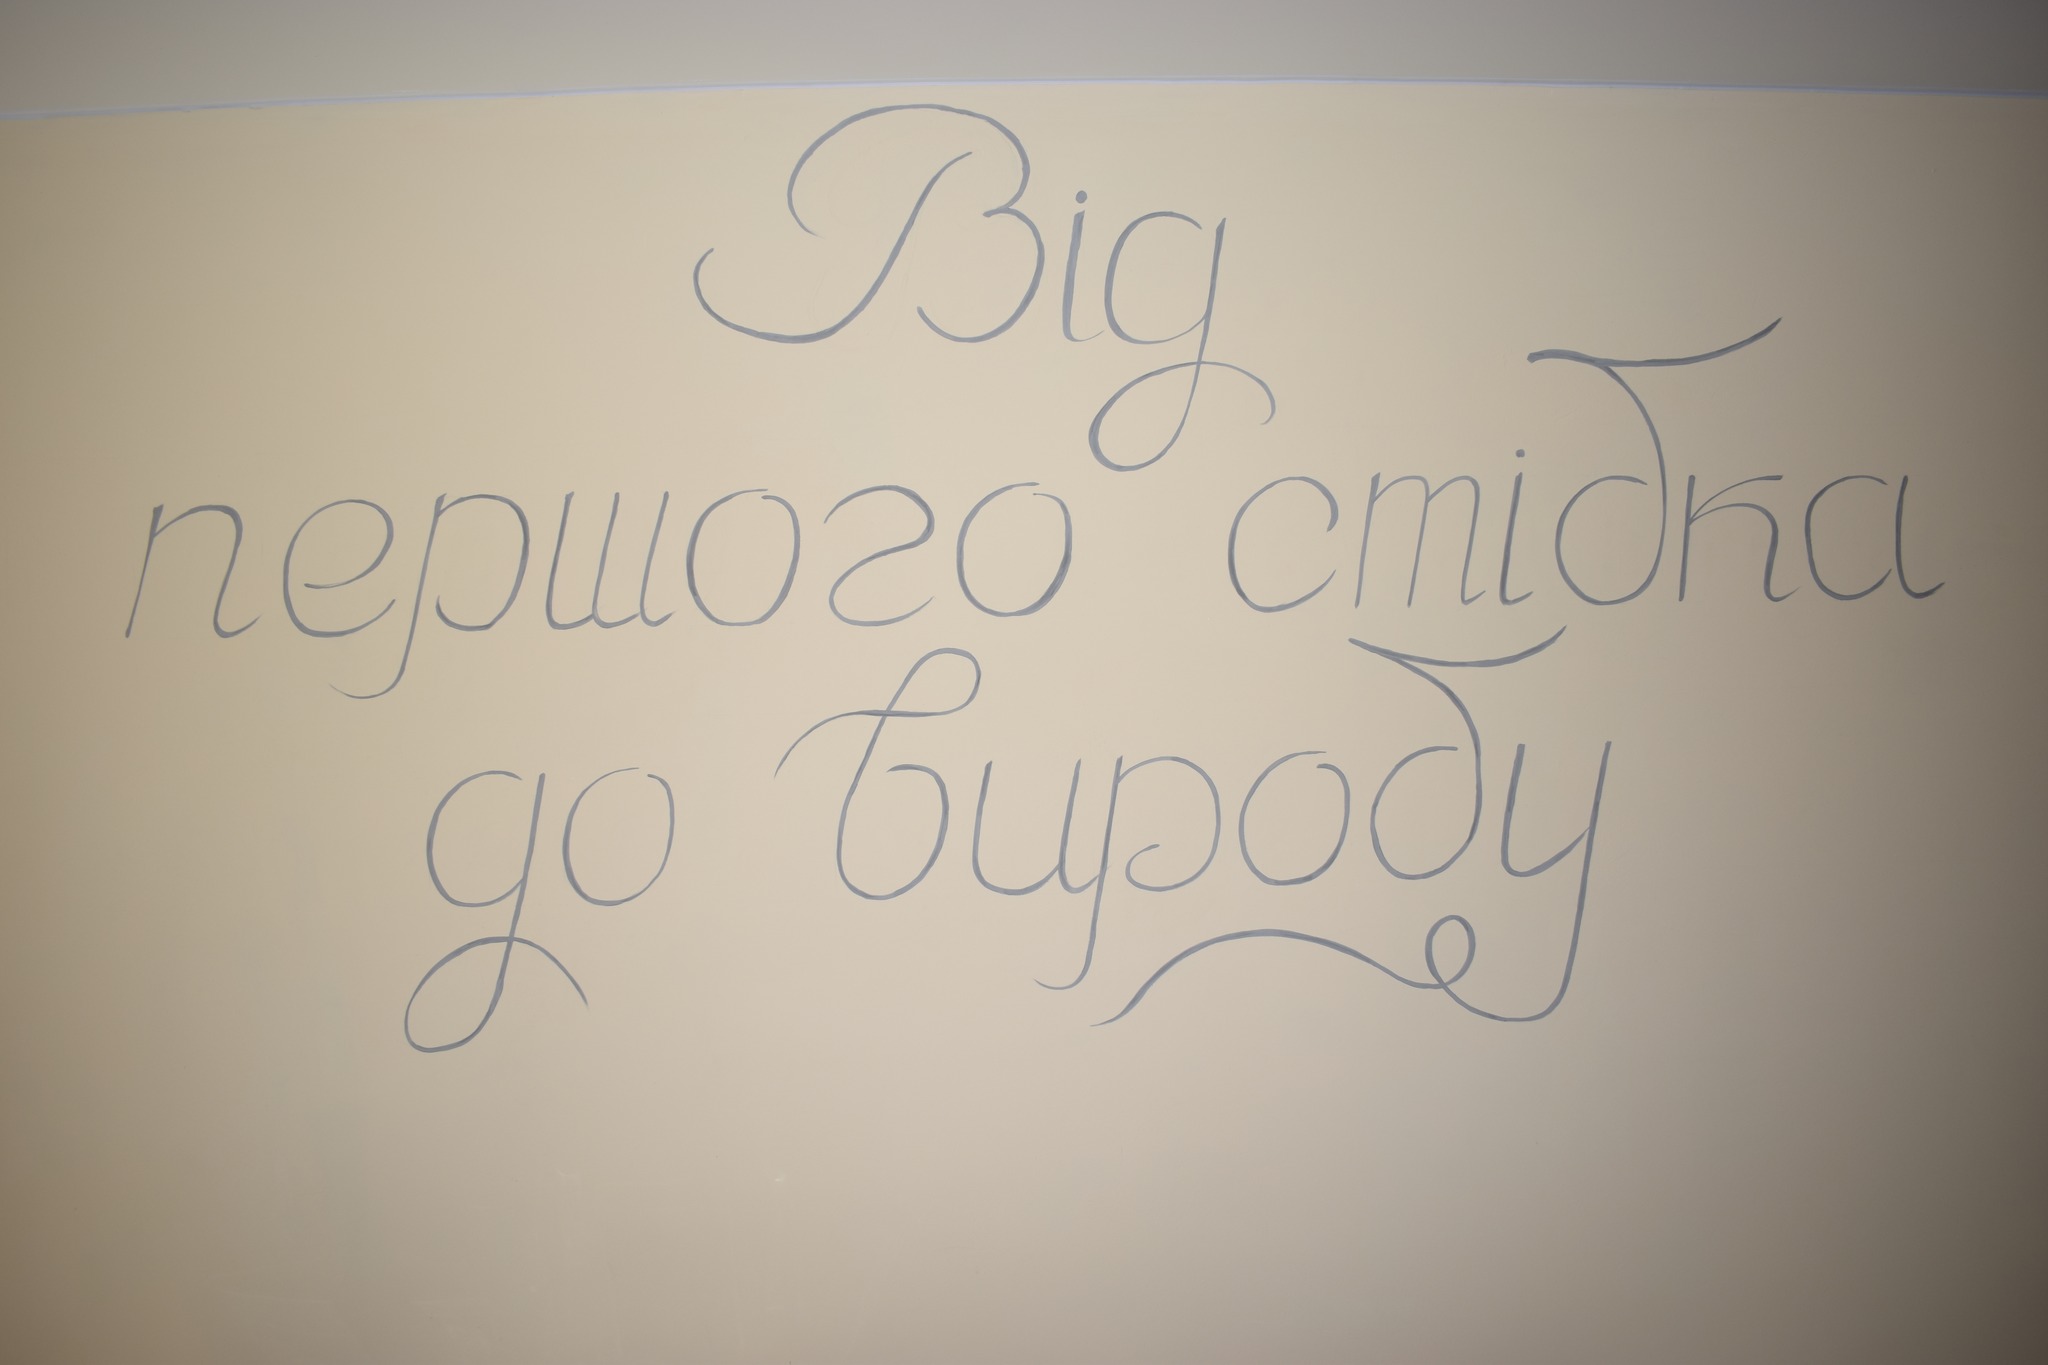 Від
першого стібка
до виробу